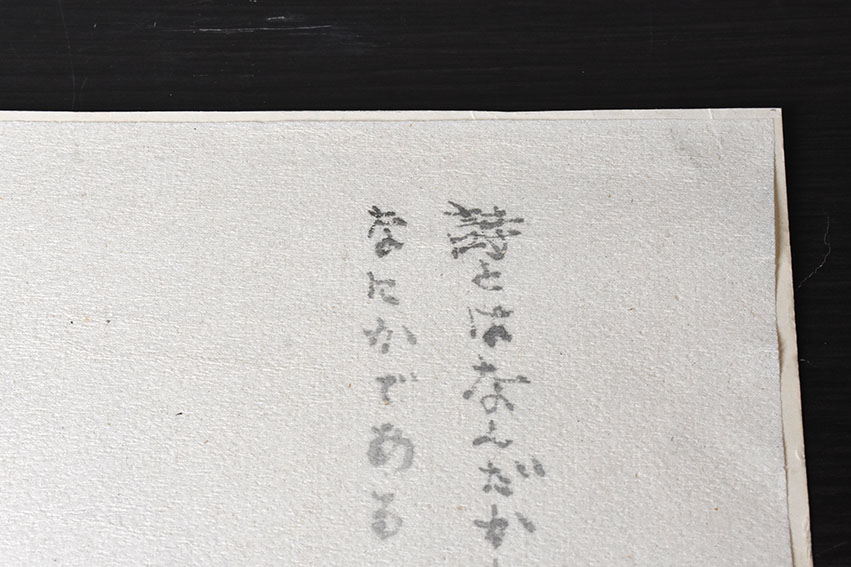 詩とはなんだか
なにかである